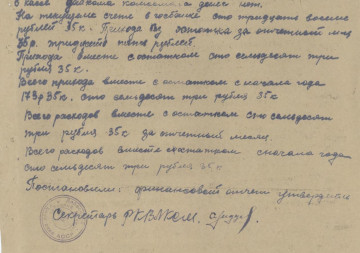 в кассе райкома комсомола денег нет.
На текущем счете в госбанке сто тридцать восемь
рублей 35 к. Прихода без остатка за отчетный м-ц
35 р. тридцать пять рублей.
Прихода вместе с остатком сто семьдесят три
рубля 35 к.
Всего прихода вместе с остатком с начала года
173 р 35 к. сто семьдесят три рубля 35 к
Всего расходов вместе с остатком сто семьдесят
три рубля 35 к за отчетный месяц.
Всего расходов вместе с остатком с начала года
сто семьдесят три рубля 35 к
Постановили: финансовый отчет утвердить
Секретарь РК ВЛКСМ.